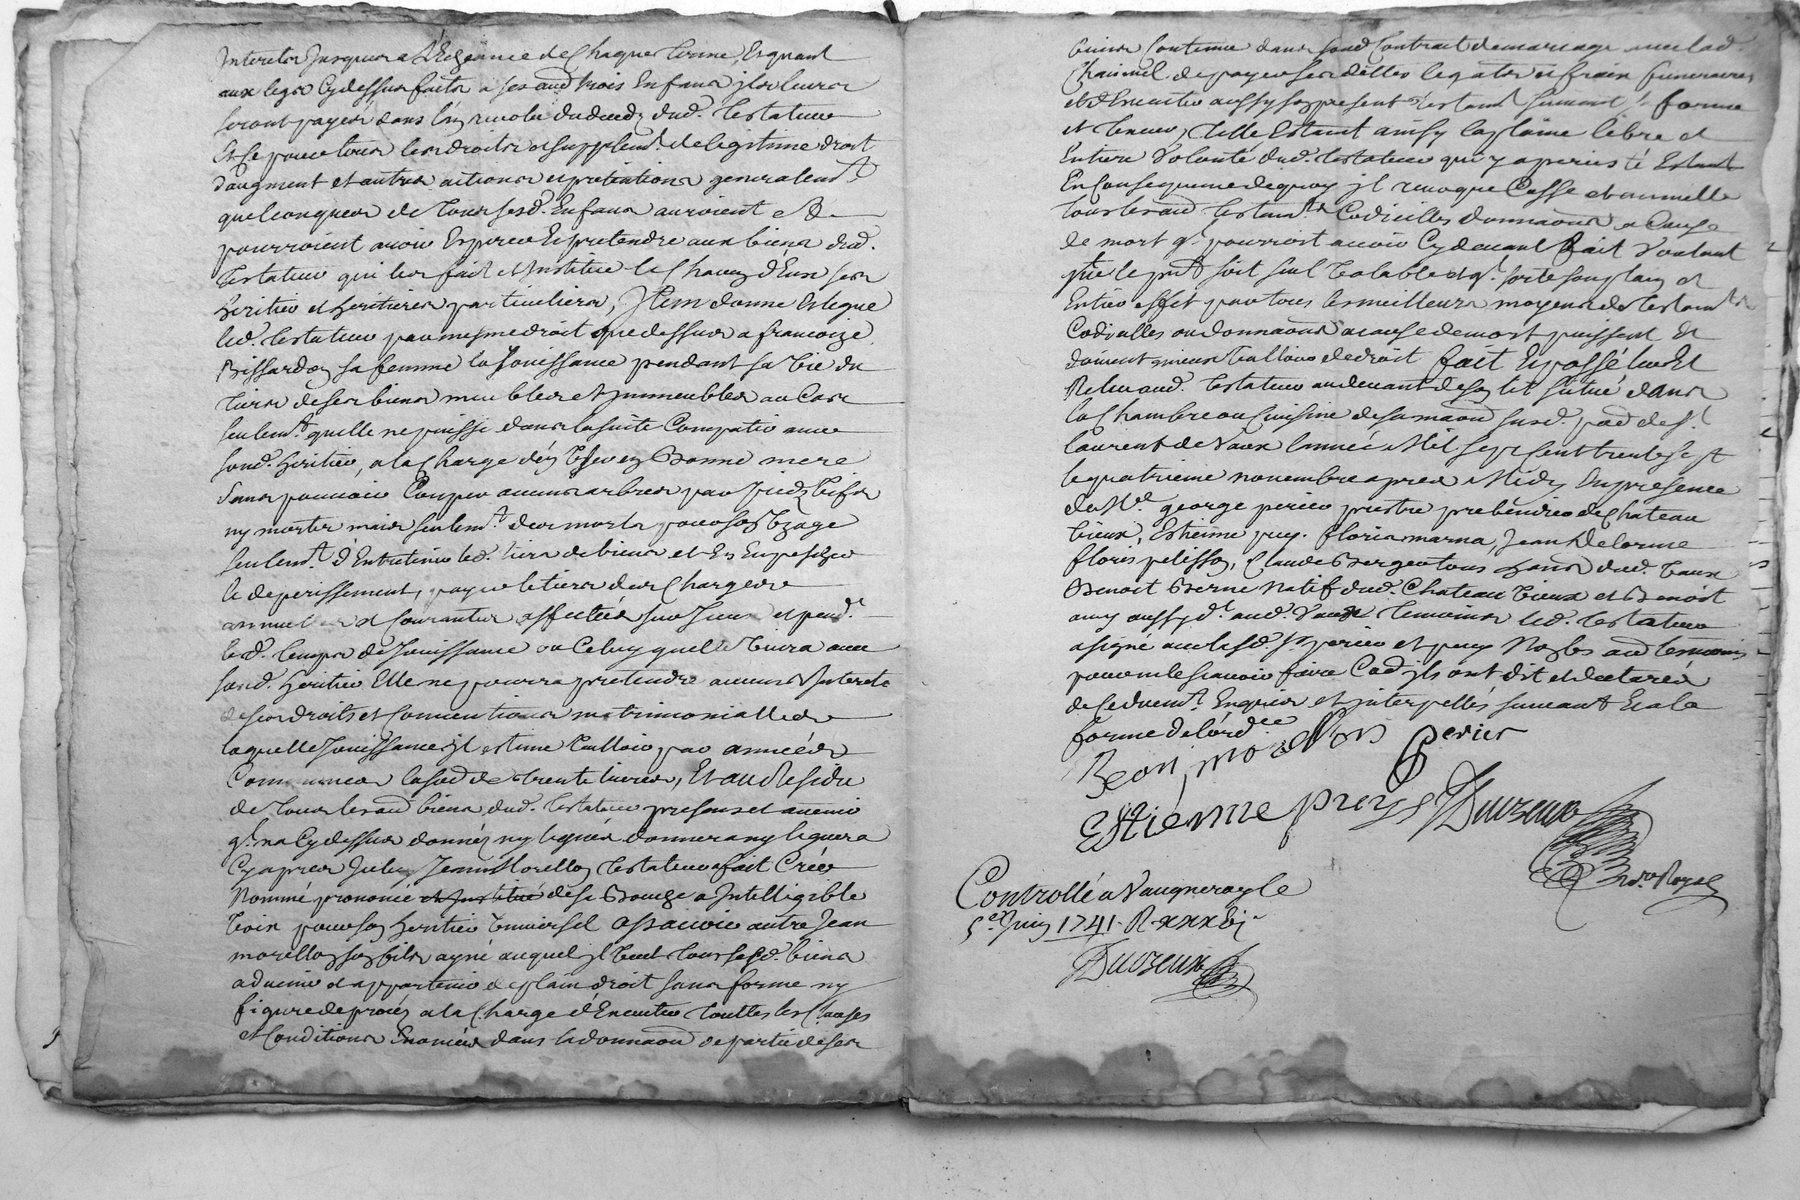 Interetz Jusques a L'Echeance de Chaque terme, Et quant
aux legs Cydessus faits a ses aud trois Enfans ils leurs
seront payés dans l'an revolu du deceds dud. testateur
Et ce pour tous les droits et supplemt. de legitime droit
daugment et autres actions et pretentions generalemt.
quelconques de tous sesd. Enfans auroient et
pourroient avoir Esperer Et pretendre aux biens dud.
testateur qui les fait et Institue le Chacun d'Eux ses
heritier et heritieres particulieres, Item donne et legue
led. testateur par mesme droit que dessus a francoize
Brissardon sa femme la Jouissance pendant sa vie du
tiers de ses biens meubles et Immeubles au Cas
seulemt. quelle ne puisse dans la suite Compatir avec
sond. heritier, a la Charge d'en User en Bonne mere
sans pouvoir Couper aucuns arbres par pieds vifs
ny morts mais seulemt. des morts pour son Uzage
seulemt. d'Entretenir led. tiers de biens et En Empescher
le deperissement, payer le tiers des Charges
annuelles et Courantes affectées sur Iceux et pendt.
led. temps de Jouissance ou Celuy quelle vivra avec
sond. heritier Elle ne pourra pretendre aucuns Interets
de ses droits et Conventions matrimonialles
laquelle Jouissance il estime valloir par années
Communes la so de trente livres, Et au Residu
de tous lesd biens dud. testateur presens et avenir
qt. na Cydessus donnés ny legués donnera ny leguera
Cy apres Iceluy Jean Morellon testateur a fait Créé
Nommé prononcé et Institué de sa Bouche a Intelligible
voix pour son heritier Universel assavoir autre Jean
morellon son fils ayné auquel il veut tous sesd. biens
advenir et appartenir de plain droit sans forme ny
figure de procés a la Charge d'Executer touttes les Clauses
et Conditions Enoncées dans la donnaon de partie de ses
biens Contenue dans sond Contrat de mariage avec lad.
Chaumel de payer ses dettes legats et fraix funeraires
et d'Executer aussy son present testamt. suivant sa forme
et teneur, telle Estant ainsy la plaine libre et
Entiere Volonté dud. testateur qui y a persisté Estant
En Consequence de quoy il revoque Casse et annulle
tous lesaud testamts. Codicilles donnaons a Cause
de mort qt. pourroit avoir Cydevant fait Voulant
que le pnt soit seul valable et qt. sorte son plain et
Entier effet par tous les meilleurs moyens de testamts
Codicilles ou donnaons a cause de mort puissent et
doivent mieux valloir de droit fait Et passé leu Et
Releu aud. testateur au devant de son lit situé dans
la Chambre ou Cuisine de sa maon susd. pad de St.
laurent de Vaux lannée Mil sept cent trente sept
le quatrieme novembre apres Midy En presence
de Me. george perier prestre prebendier de Chateau
vieux, Estienne puy. floris marna, Jean Delorme
floris pelisson, Claude Berger tous habs. dud. vaux
Benoit Berne natif dud. Chateau vieux et Benoist
aussy dt. aud. Vaux temoins led. testateur
a signé avec led. Sr. perier et puy Non les aud temoins
pour ne le scavoir faire Cad ils ont dit et declaré
de Ceduemt. Enquis et interpellés suivant Et a la
forme de lordce
Jean, morellon Perier
Estienne puys Duozeux
Nore. Royal
Controllé a Vaugneray le
5e. Juin 1741. R. xxxbj s
Duozeux